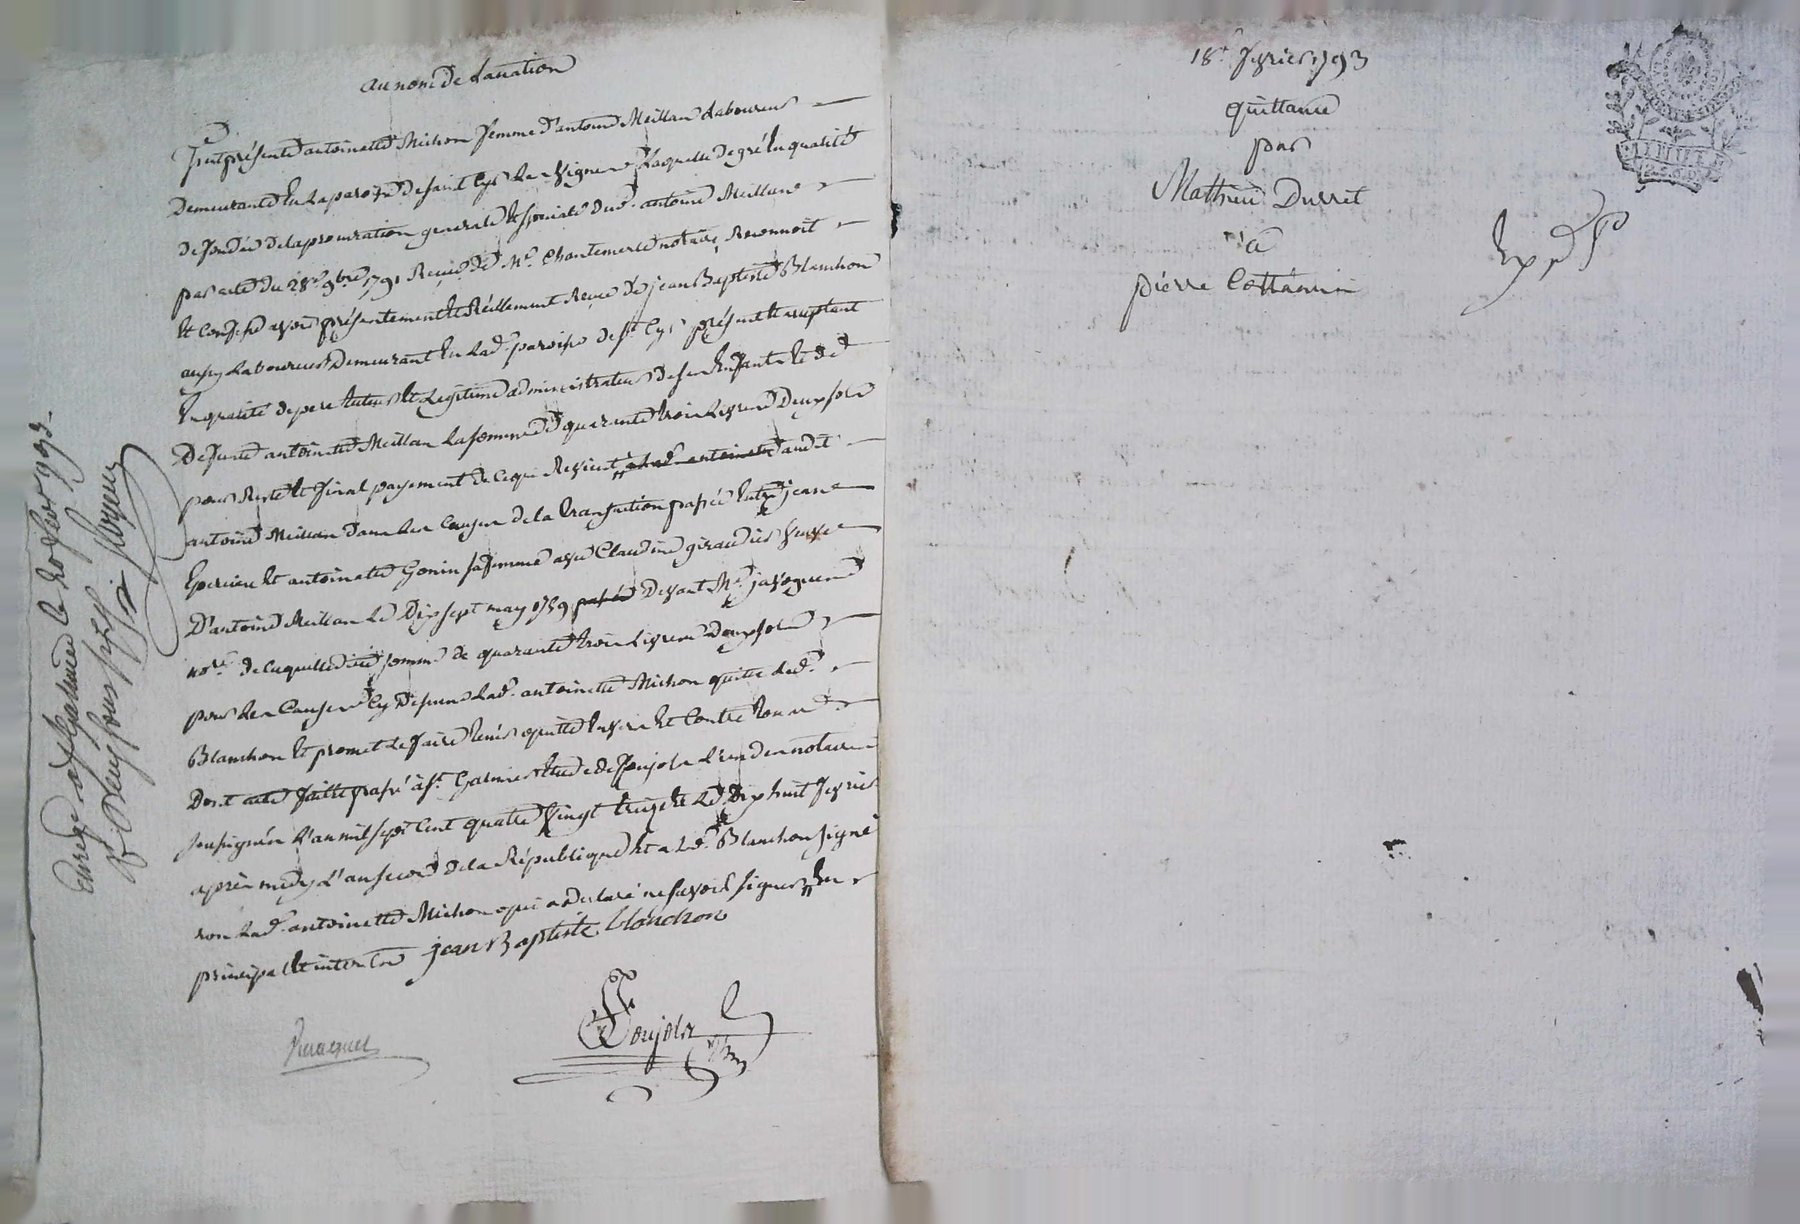 au nom de la nation
fut présente antoinette Michon femme d'antoine Meillan laboureur
demeurante en la paroisse de saint Cyr les Vignes laquelle de gré en qualité
de fondée de la procuration generale et speciale dud. antoine Meillan
par acte du 28e. 9bre 1791 Reçue de Me. Chantemerle notaire, Reconnoit
et confesse avoir présentement et Réellement Reçue de jean Baptiste Blanchon
aussy laboureur demeurant en lad. paroisse de st. Cyr présent et acceptant
en qualité de pere tuteur et Legitime administrateur de ses Enfants et de
Defunte antoinette Meillan la somme de quarante trois Livres Deux sols
pour Reste et final payement de ce qui Revient a lad. antoinette audit
antoine Meillan dans les Causes de la transaction passée entre jean
Epercieu et antoinette Gonin sa femme avec Claudine giraudier veuve
D'antoine Meillan Le Dix sept may 1759 passée Devant Me. javogues
nore. de laquelle dite somme de quarante trois Livres Deux sols
pour les Causes Cy Dessus lad. antoinette Michon quitte led.
Blanchon et promet le faire tenir quitte envers et Contre tous
Dont acte fait et passé à st. Galmier Etude de Foujols l'un des notaires
soussignés L'an mil sept Cent quatre Vingt treize et Le Dix huit fevrier
après midy L'an second de la République et a led. Blanchon signé
non lad. antoinette Michon qui a declaré ne savoir signer
principal et interlon jean Baptiste blanchon
Foujols
18e. fevrier 1793
quittance
par
Mathieu Durret
à
pierre Cottancin